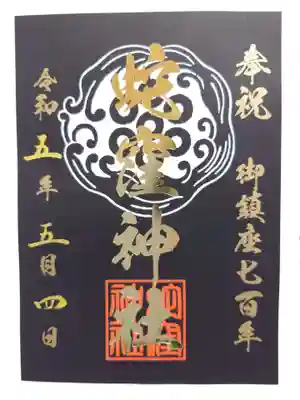 奉祝 御鎮座七百年
蛇窪神社
令和五年五月四日
蛇窪神社